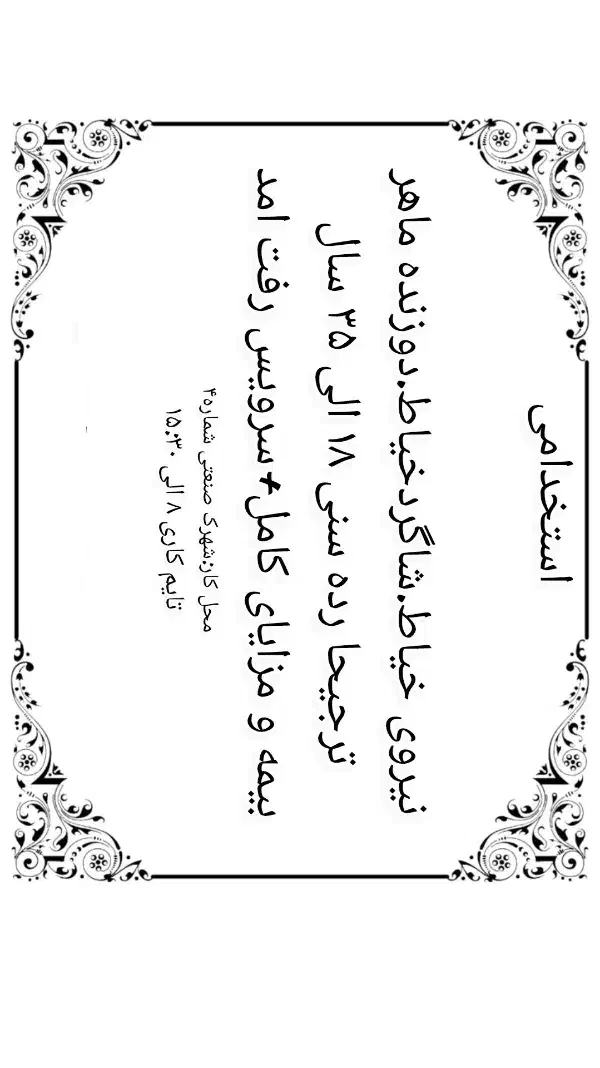 استخدامی
نیروی خیاط.شاگردخیاط.دوزنده ماهر
ترجیحا رده سنی ۱۸ الی ۳۵ سال
بیمه و مزایای کامل+سرویس رفت امد
محل کار:شهرک صنعتی شماره۴
تایم کاری ۸ الی ۱۵:۳۰